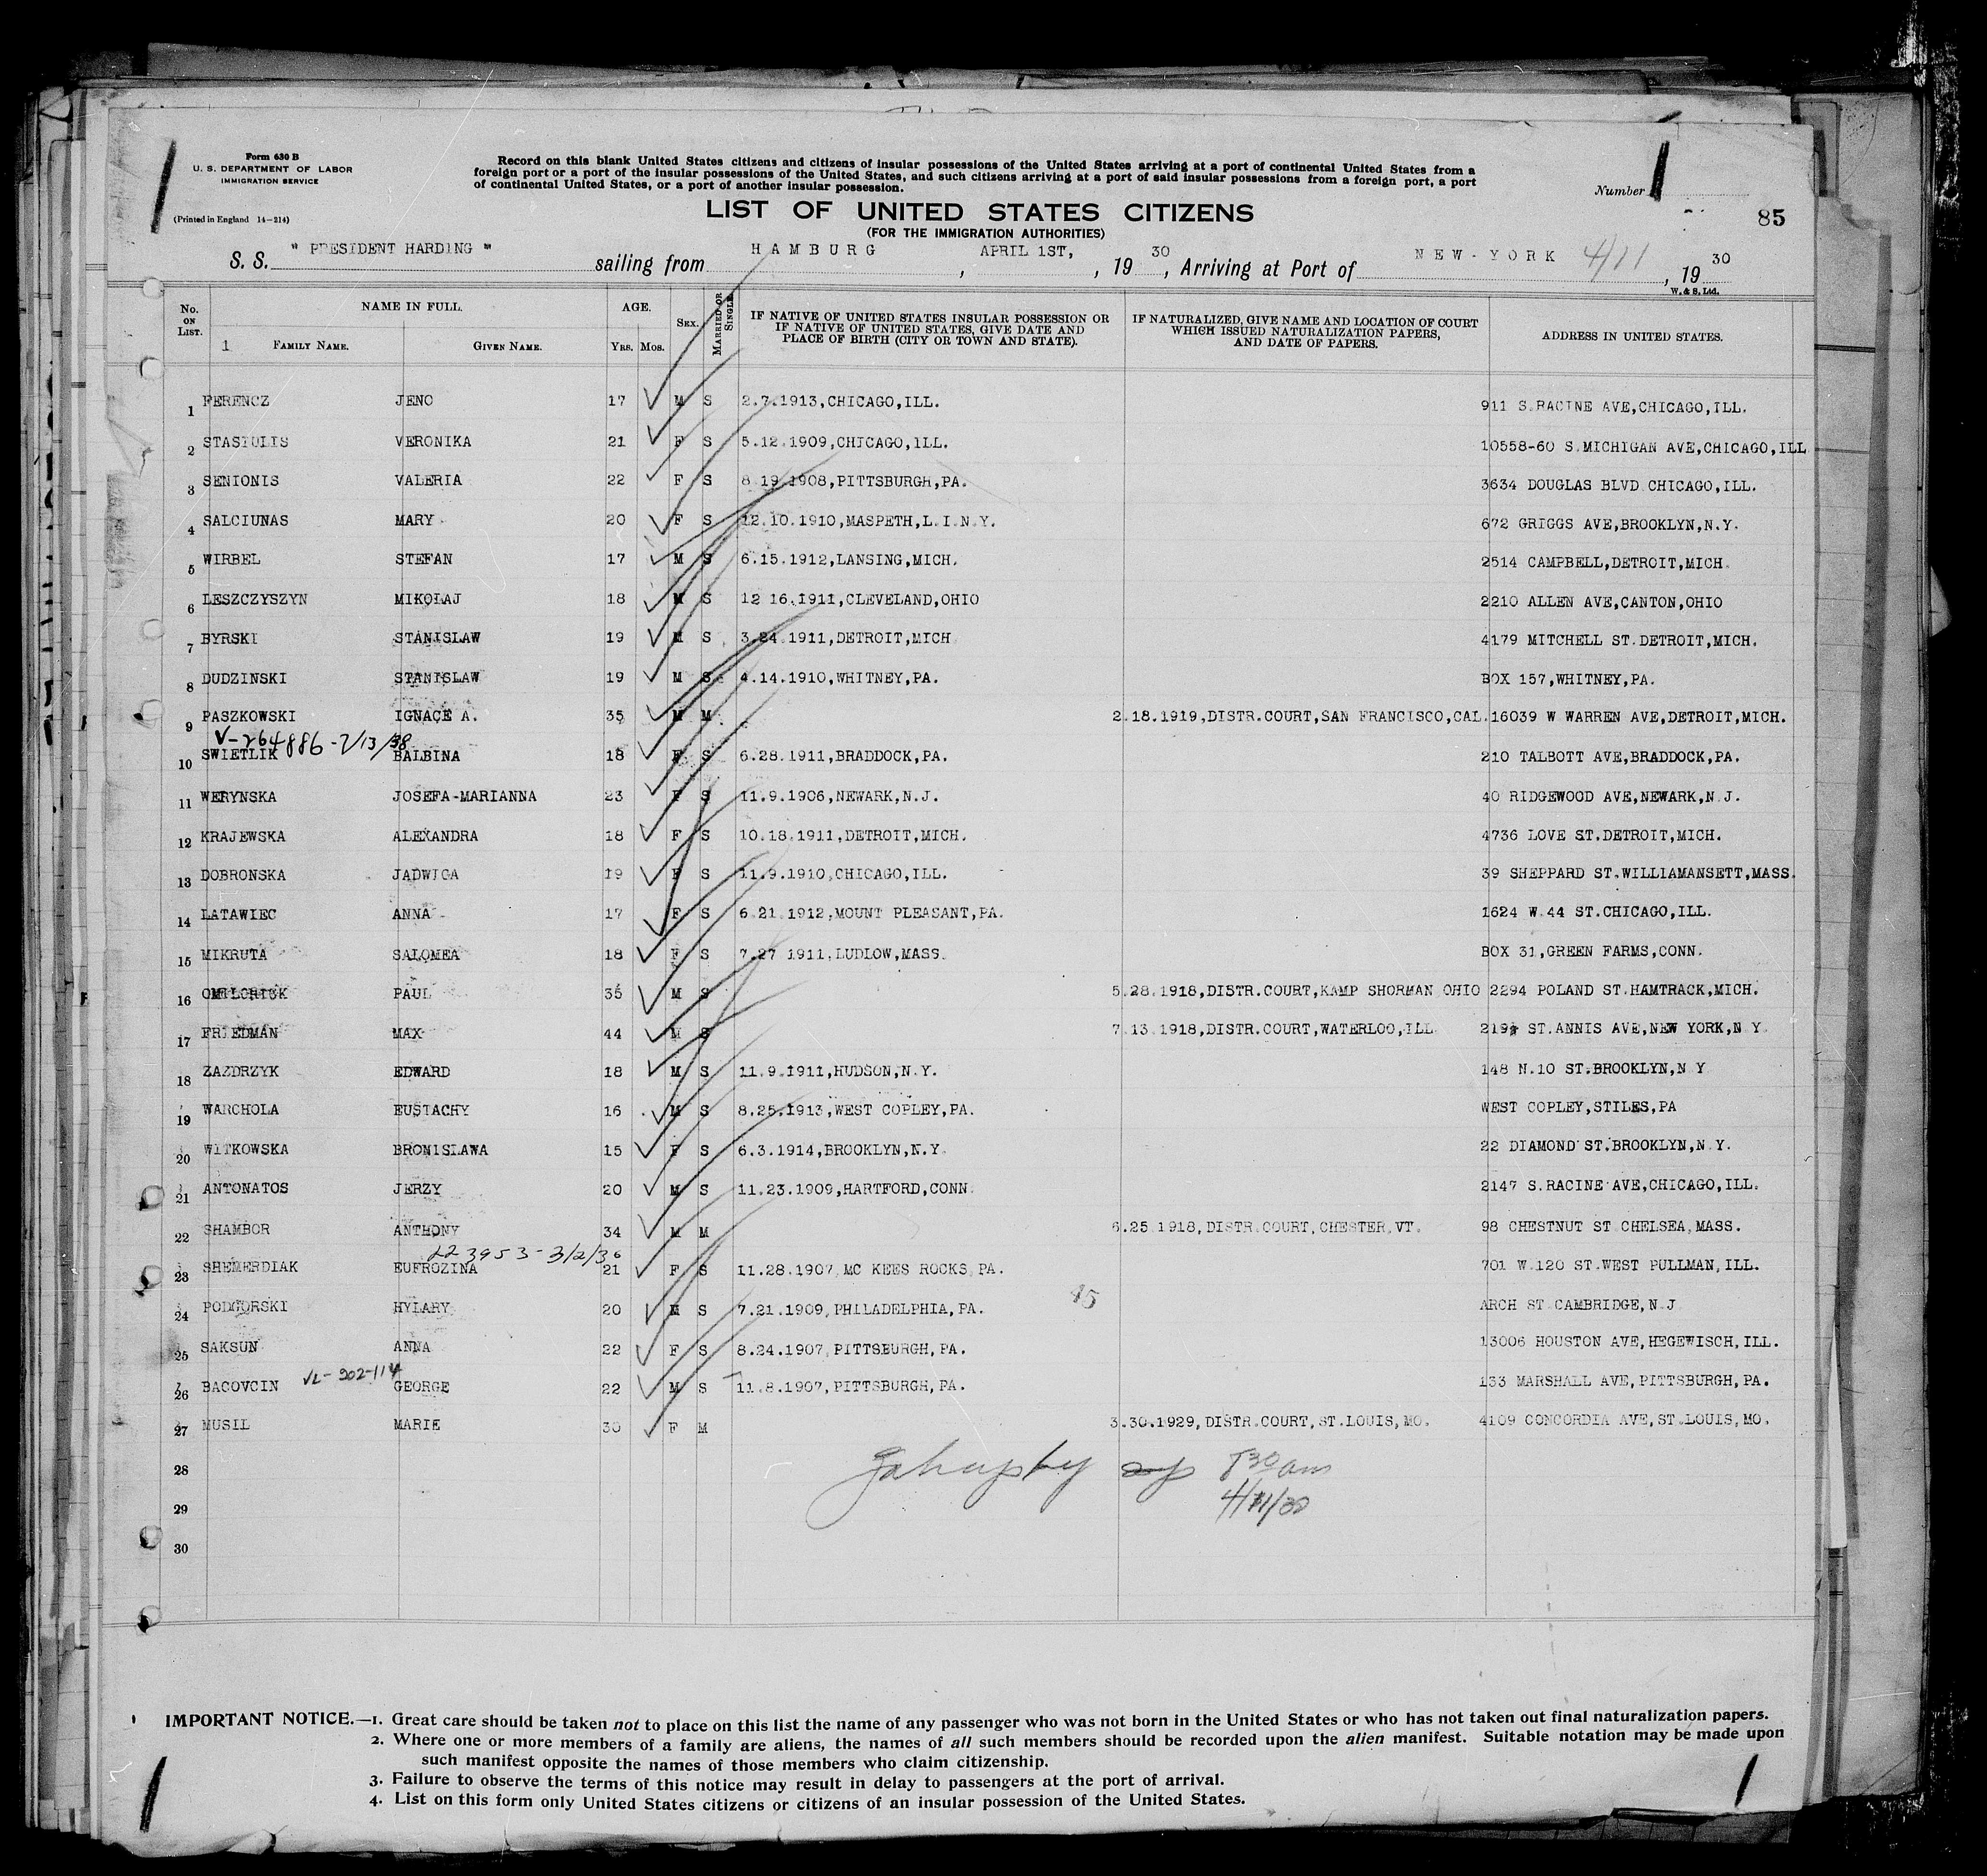 Form 630 B
U. S. DEPARTMENT OF LABOR
IMMIGRATION SERVICE
(Printed in England 14—214)
Record on this blank United States citizens and citizens of insular possessions of the United States arriving at a port of continental United States from a
foreign port or a port of the insular possessions of the United States, and such citizens arriving at a port of said insular possessions from a foreign port, a port
of continental United States, or a port of another insular possession.
Number
85
LIST OF UNITED STATES CITIZENS
(FOR THE IMMIGRATION AUTHORITIES)
S. S. " PRESIDENT HARDING " sailing from HAMBURG, APRIL 1ST, , 19 30, Arriving at Port of NEW-YORK 4/11, 19 30
W. & S. Ltd.
No. ON LIST. NAME IN FULL. AGE. SEX. MARRIED OR SINGLE. IF NATIVE OF UNITED STATES INSULAR POSSESSION OR IF NATIVE OF UNITED STATES, GIVE DATE AND PLACE OF BIRTH (CITY OR TOWN AND STATE). IF NATURALIZED, GIVE NAME AND LOCATION OF COURT WHICH ISSUED NATURALIZATION PAPERS, AND DATE OF PAPERS. ADDRESS IN UNITED STATES.
1 FAMILY NAME. GIVEN NAME. YRS. MOS.
1 FERENCZ JENO 17 M S 2.7.1913,CHICAGO,ILL. 911 S.RACINE AVE,CHICAGO,ILL.
2 STASIULIS VERONIKA 21 F S 5.12.1909,CHICAGO,ILL. 10558-60 S.MICHIGAN AVE,CHICAGO,ILL
3 SENIONIS VALERIA 22 F S 8.19.1908,PITTSBURGH,PA. 3634 DOUGLAS BLVD CHICAGO,ILL.
4 SALCIUNAS MARY 20 F S 12.10.1910,MASPETH,L.I.N.Y. 672 GRIGGS AVE,BROOKLYN,N.Y.
5 WIRBEL STEFAN 17 M S 6.15.1912,LANSING,MICH. 2514 CAMPBELL,DETROIT,MICH.
6 LESZCZYSZYN MIKOLAJ 18 M S 12 16.1911,CLEVELAND,OHIO 2210 ALLEN AVE,CANTON,OHIO
7 BYRSKI STANISLAW 19 M S 3.24.1911,DETROIT,MICH 4179 MITCHELL ST.DETROIT,MICH.
8 DUDZINSKI STANISLAW 19 M S 4.14.1910,WHITNEY,PA. BOX 157,WHITNEY,PA.
9 PASZKOWSKI IGNACE A. 35 M M 2.18.1919,DISTR.COURT,SAN FRANCISCO,CAL. 16039 W WARREN AVE,DETROIT,MICH.
V-264886-2/13/38
10 SWIETLIK BALBINA 18 F S 6.28.1911,BRADDOCK,PA. 210 TALBOTT AVE,BRADDOCK,PA.
11 WERYNSKA JOSEFA-MARIANNA 23 F S 11.9.1906,NEWARK,N.J. 40 RIDGEWOOD AVE,NEWARK,N.J.
12 KRAJEWSKA ALEXANDRA 18 F S 10.18.1911,DETROIT,MICH. 4736 LOVE ST.DETROIT,MICH.
13 DOBRONSKA JADWIGA 19 F S 11.9.1910,CHICAGO,ILL. 39 SHEPPARD ST.WILLIAMANSETT,MASS.
14 LATAWIEC ANNA 17 F S 6.21.1912,MOUNT PLEASANT,PA. 1624 W.44 ST.CHICAGO,ILL.
15 MIKRUTA SALOMEA 18 F S 7.27 1911,LUDLOW,MASS. BOX 31,GREEN FARMS,CONN.
16 PAUL 35 M S 5.28.1918,DISTR.COURT,KAMP SHORMAN OHIO 2294 POLAND ST.HAMTRACK,MICH.
17 FRIEDMAN MAX 44 M S 7.13.1918,DISTR.COURT,WATERLOO,ILL. ST.ANNIS AVE,NEW YORK,N Y.
18 ZAZDRZYK EDWARD 18 M S 11.9.1911,HUDSON,N.Y. 148 N.10 ST.BROOKLYN,N Y
19 WARCHOLA EUSTACHY 16 M S 8.25.1913,WEST COPLEY,PA. WEST COPLEY,STILES,PA
20 WITKOWSKA BRONISLAWA 15 F S 6.3.1914,BROOKLYN,N.Y. 22 DIAMOND ST.BROOKLYN,N.Y.
21 ANTONATOS JERZY 20 M S 11.23.1909,HARTFORD,CONN. 2147 S.RACINE AVE,CHICAGO,ILL.
22 SHAMBOR ANTHONY 34 M M 6.25.1918,DISTR.COURT,CHESTER,VT. 98 CHESTNUT ST.CHELSEA,MASS.
223953-3/2/36
23 SHEMERDIAK EUFROZINA 21 F S 11.28.1907,MC KEES ROCKS,PA. 701 W.120 ST.WEST PULLMAN,ILL.
24 PODGORSKI HYLARY 20 M S 7.21.1909,PHILADELPHIA,PA. ARCH ST.CAMBRIDGE,N.J
25 SAKSUN ANNA 22 F S 8.24.1907,PITTSBURGH,PA. 13006 HOUSTON AVE,HEGEWISCH,ILL.
VL-202-114
26 BACOVCIN GEORGE 22 M S 11.8.1907,PITTSBURGH,PA. 133 MARSHALL AVE,PITTSBURGH,PA.
27 MUSIL MARIE 30 F M 3.30.1929,DISTR.COURT,ST.LOUIS,MO. 4109 CONCORDIA AVE,ST.LOUIS,MO.
28 830 am
29 4/11/30
30
IMPORTANT NOTICE.—1. Great care should be taken not to place on this list the name of any passenger who was not born in the United States or who has not taken out final naturalization papers.
2. Where one or more members of a family are aliens, the names of all such members should be recorded upon the alien manifest. Suitable notation may be made upon
such manifest opposite the names of those members who claim citizenship.
3. Failure to observe the terms of this notice may result in delay to passengers at the port of arrival.
4. List on this form only United States citizens or citizens of an insular possession of the United States.